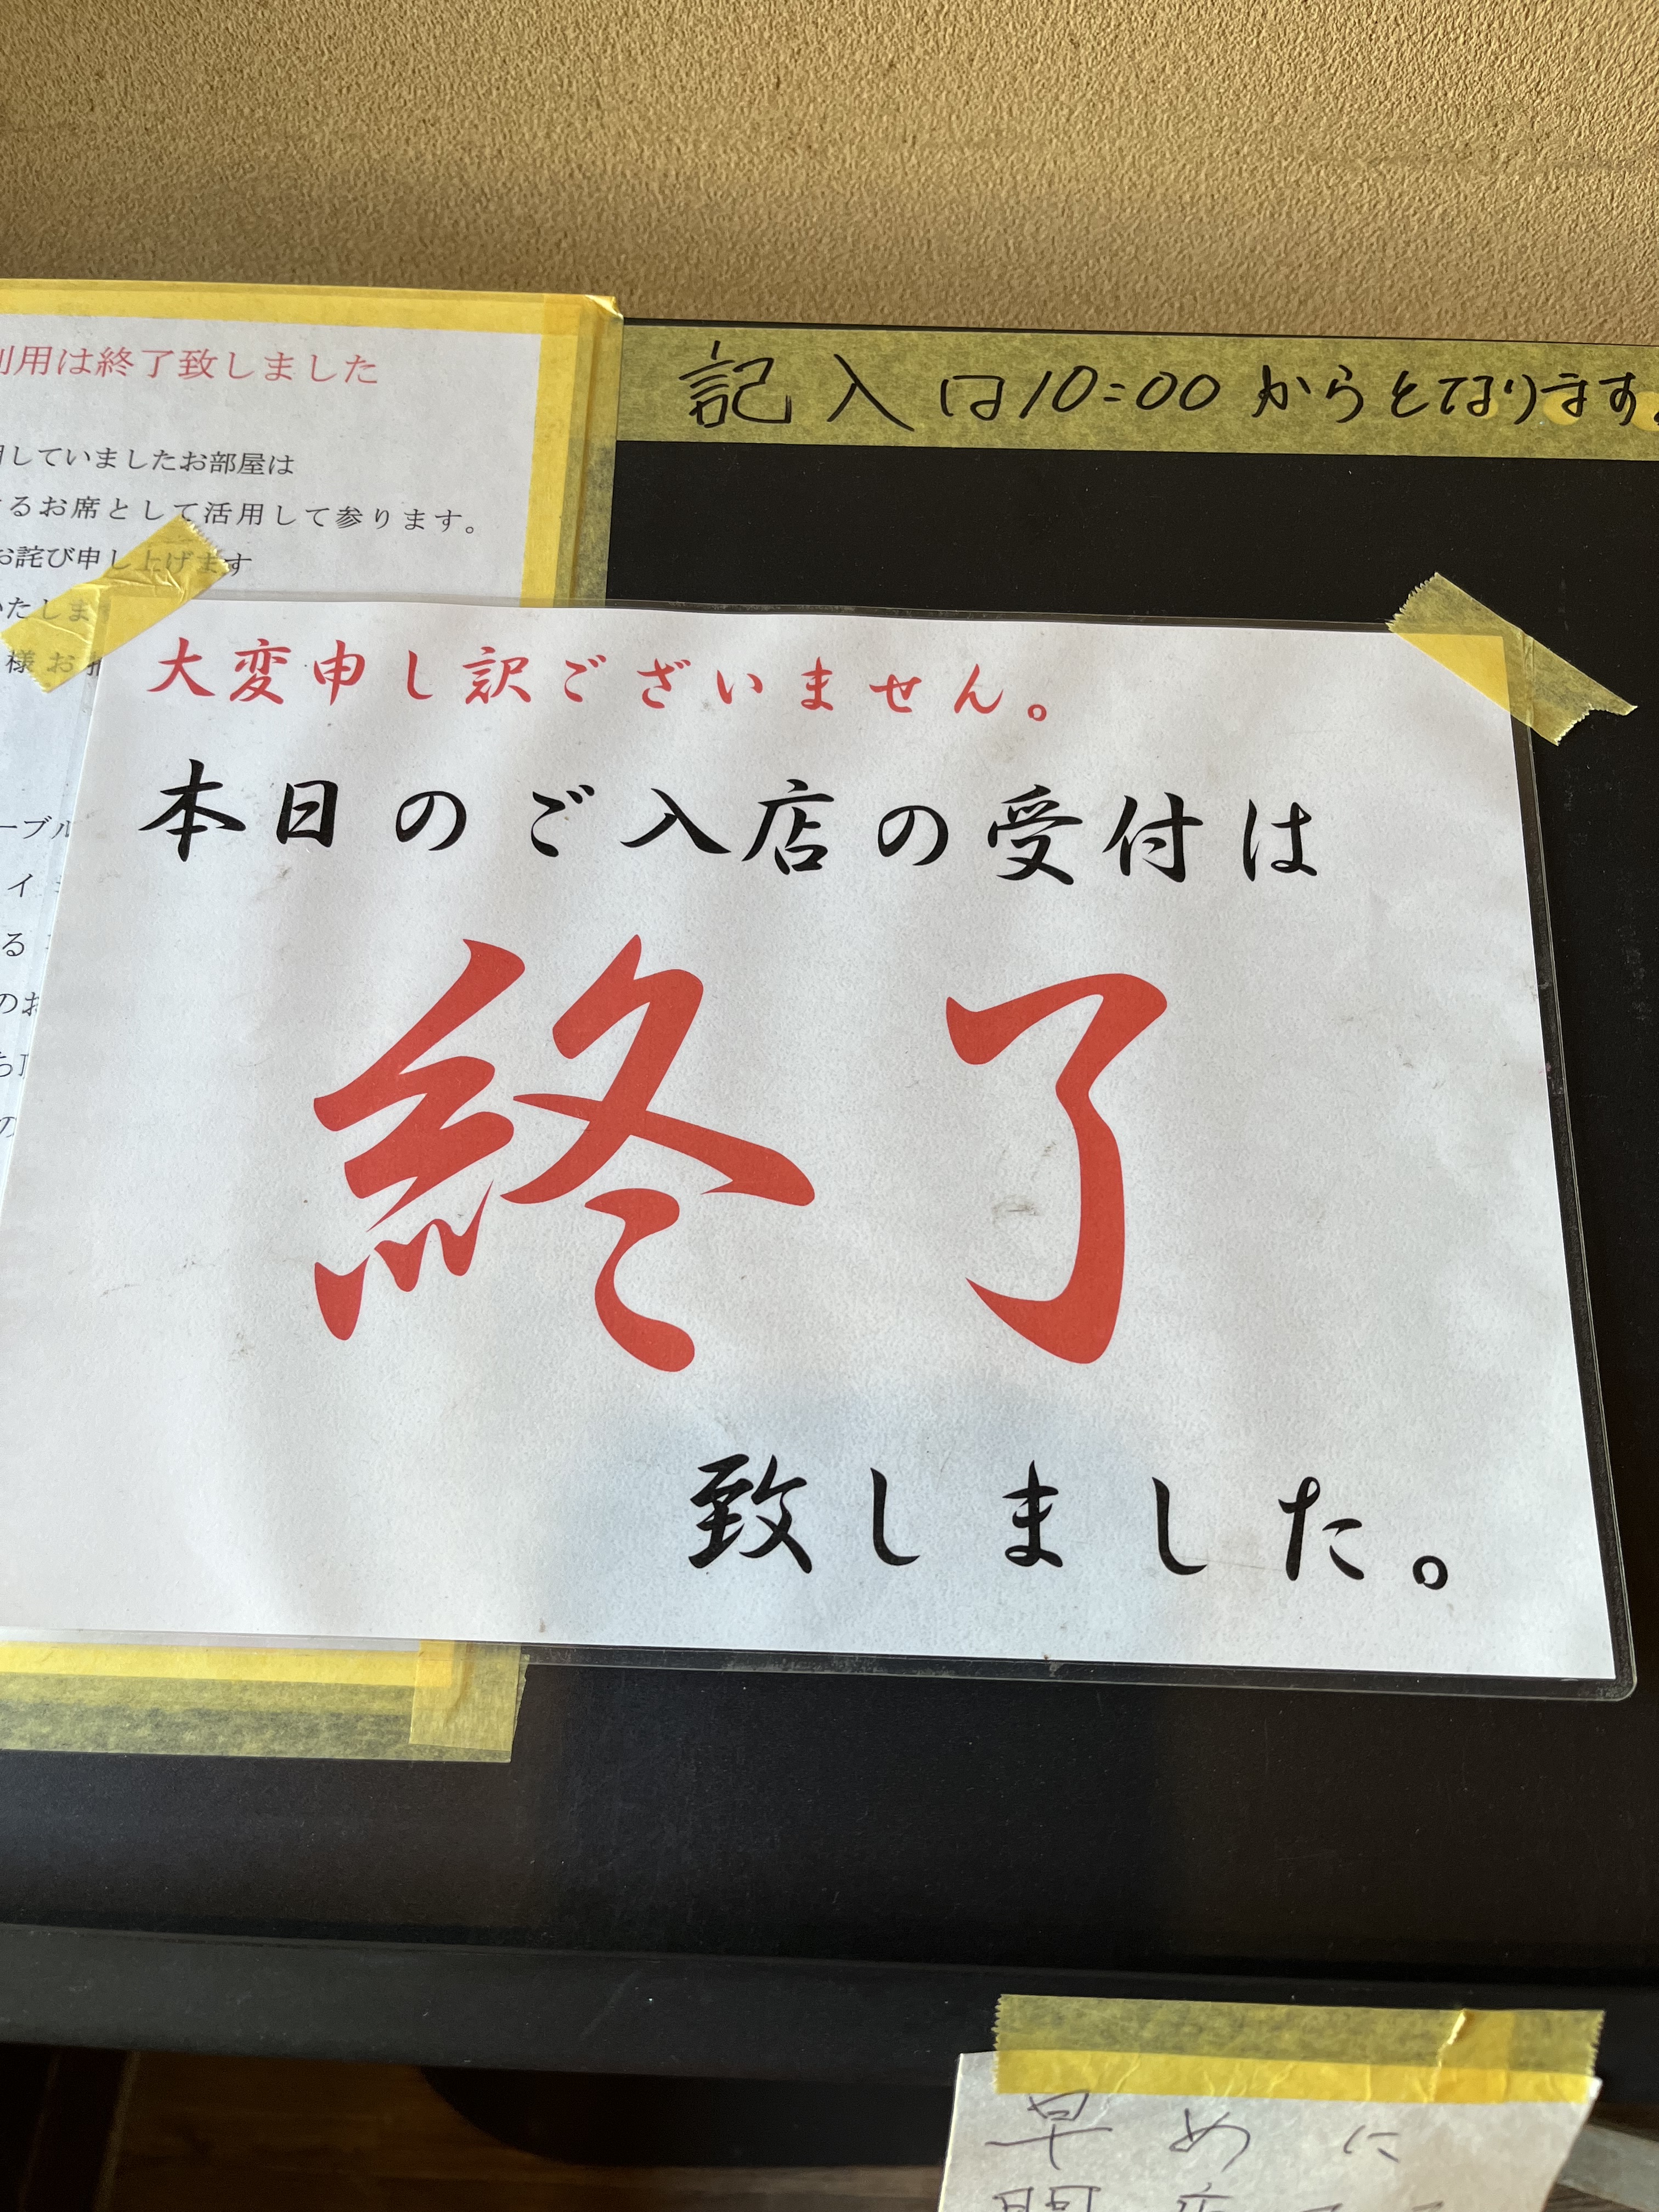 記入は10:00からとなります。
利用は終了致しました
していましたお部屋は
るお席として活用して参ります。
お詫び申し上げます
いたしま
様お
大変申し訳ございません。
本日のご入店の受付は
終了
致しました。
ーブル
イ
る
のお
の
早めに